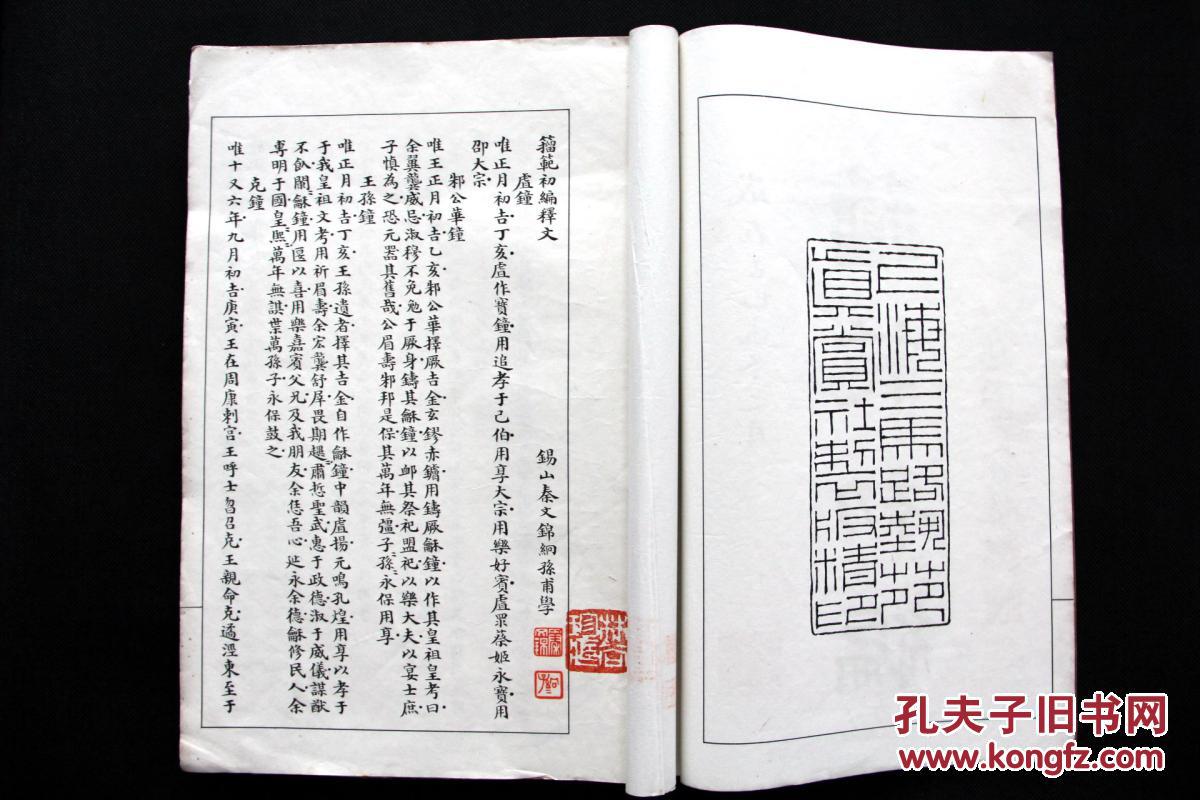 上海三馬路藝苑
真賞社製版精印
籀範初編釋文
錫山秦文錦絅孫甫學
虘鐘
唯正月初吉丁亥虘作寶鐘用追孝于己伯用享大宗用樂好賓虘眔蔡姬永寶用
邵大宗
邾公華鐘
唯王正月初吉乙亥邾公華擇厥吉金玄鏐赤鏞用鑄厥龢鐘以作其皇祖皇考曰
余翼龔威忌淑穆不兔勉于厥身鑄其龢鐘以卹其祭祀盟祀以樂大夫以宴士庶
子慎為之恐元器其舊哉公眉壽邾邦是保其萬年無彊子孫永保用享
王孫鐘
唯正月初吉丁亥王孫遺者擇其吉金自作龢鐘中韻虘揚元鳴孔煌用享以孝于
于我皇祖文考用祈眉壽余宏龔舒屖畏期趩肅悊聖武惠于政德淑于威儀謀猷
不飤闌龢鐘用匽以喜用樂嘉賓父兄及我朋友余恁吾心延永余德龢修民人余
專明于國皇熙萬年無諆枼萬孫子永保鼓之
克鐘
唯十又六年九月初吉庚寅王在周康剌宮王呼士曶召克王親命克遹涇東至于
孔夫子旧书网
www.kongfz.com